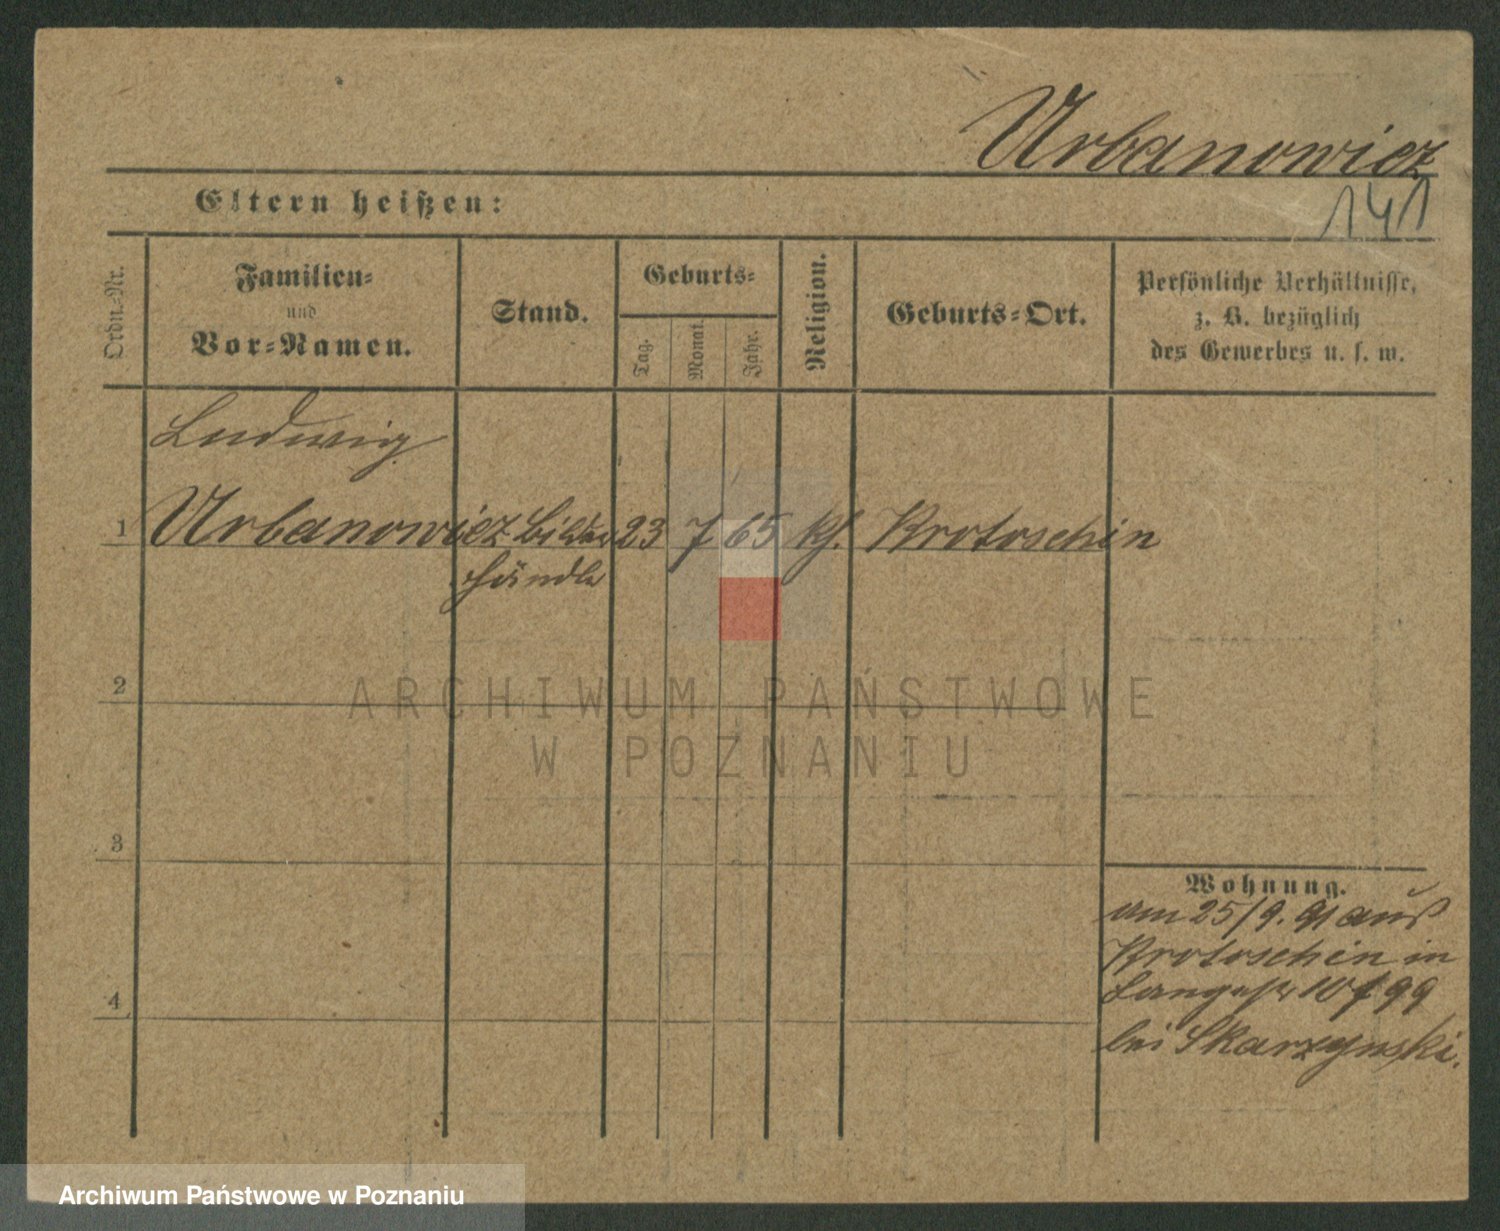 Urbanowicz
141
Eltern heißen:
Ordn.-Nr.
Familien-
und
Vor-Namen.
Stand.
Geburts-
Tag.
Monat.
Jahr.
Religion.
Geburts-Ort.
Persönliche Verhältnisse,
z. B. bezüglich
des Gewerbes u. s. w.
Ludwig
1 Urbanowicz Bilder 23 7 65 kf. Krotoschin
händler
2
ARCHIWUM PAŃSTWOWE
W POZNANIU
3
Wohnung.
am 25/9. 91 aus
Krotoschin in
4
Langestr 10 f 99
bei Skarzynski.
Archiwum Państwowe w Poznaniu